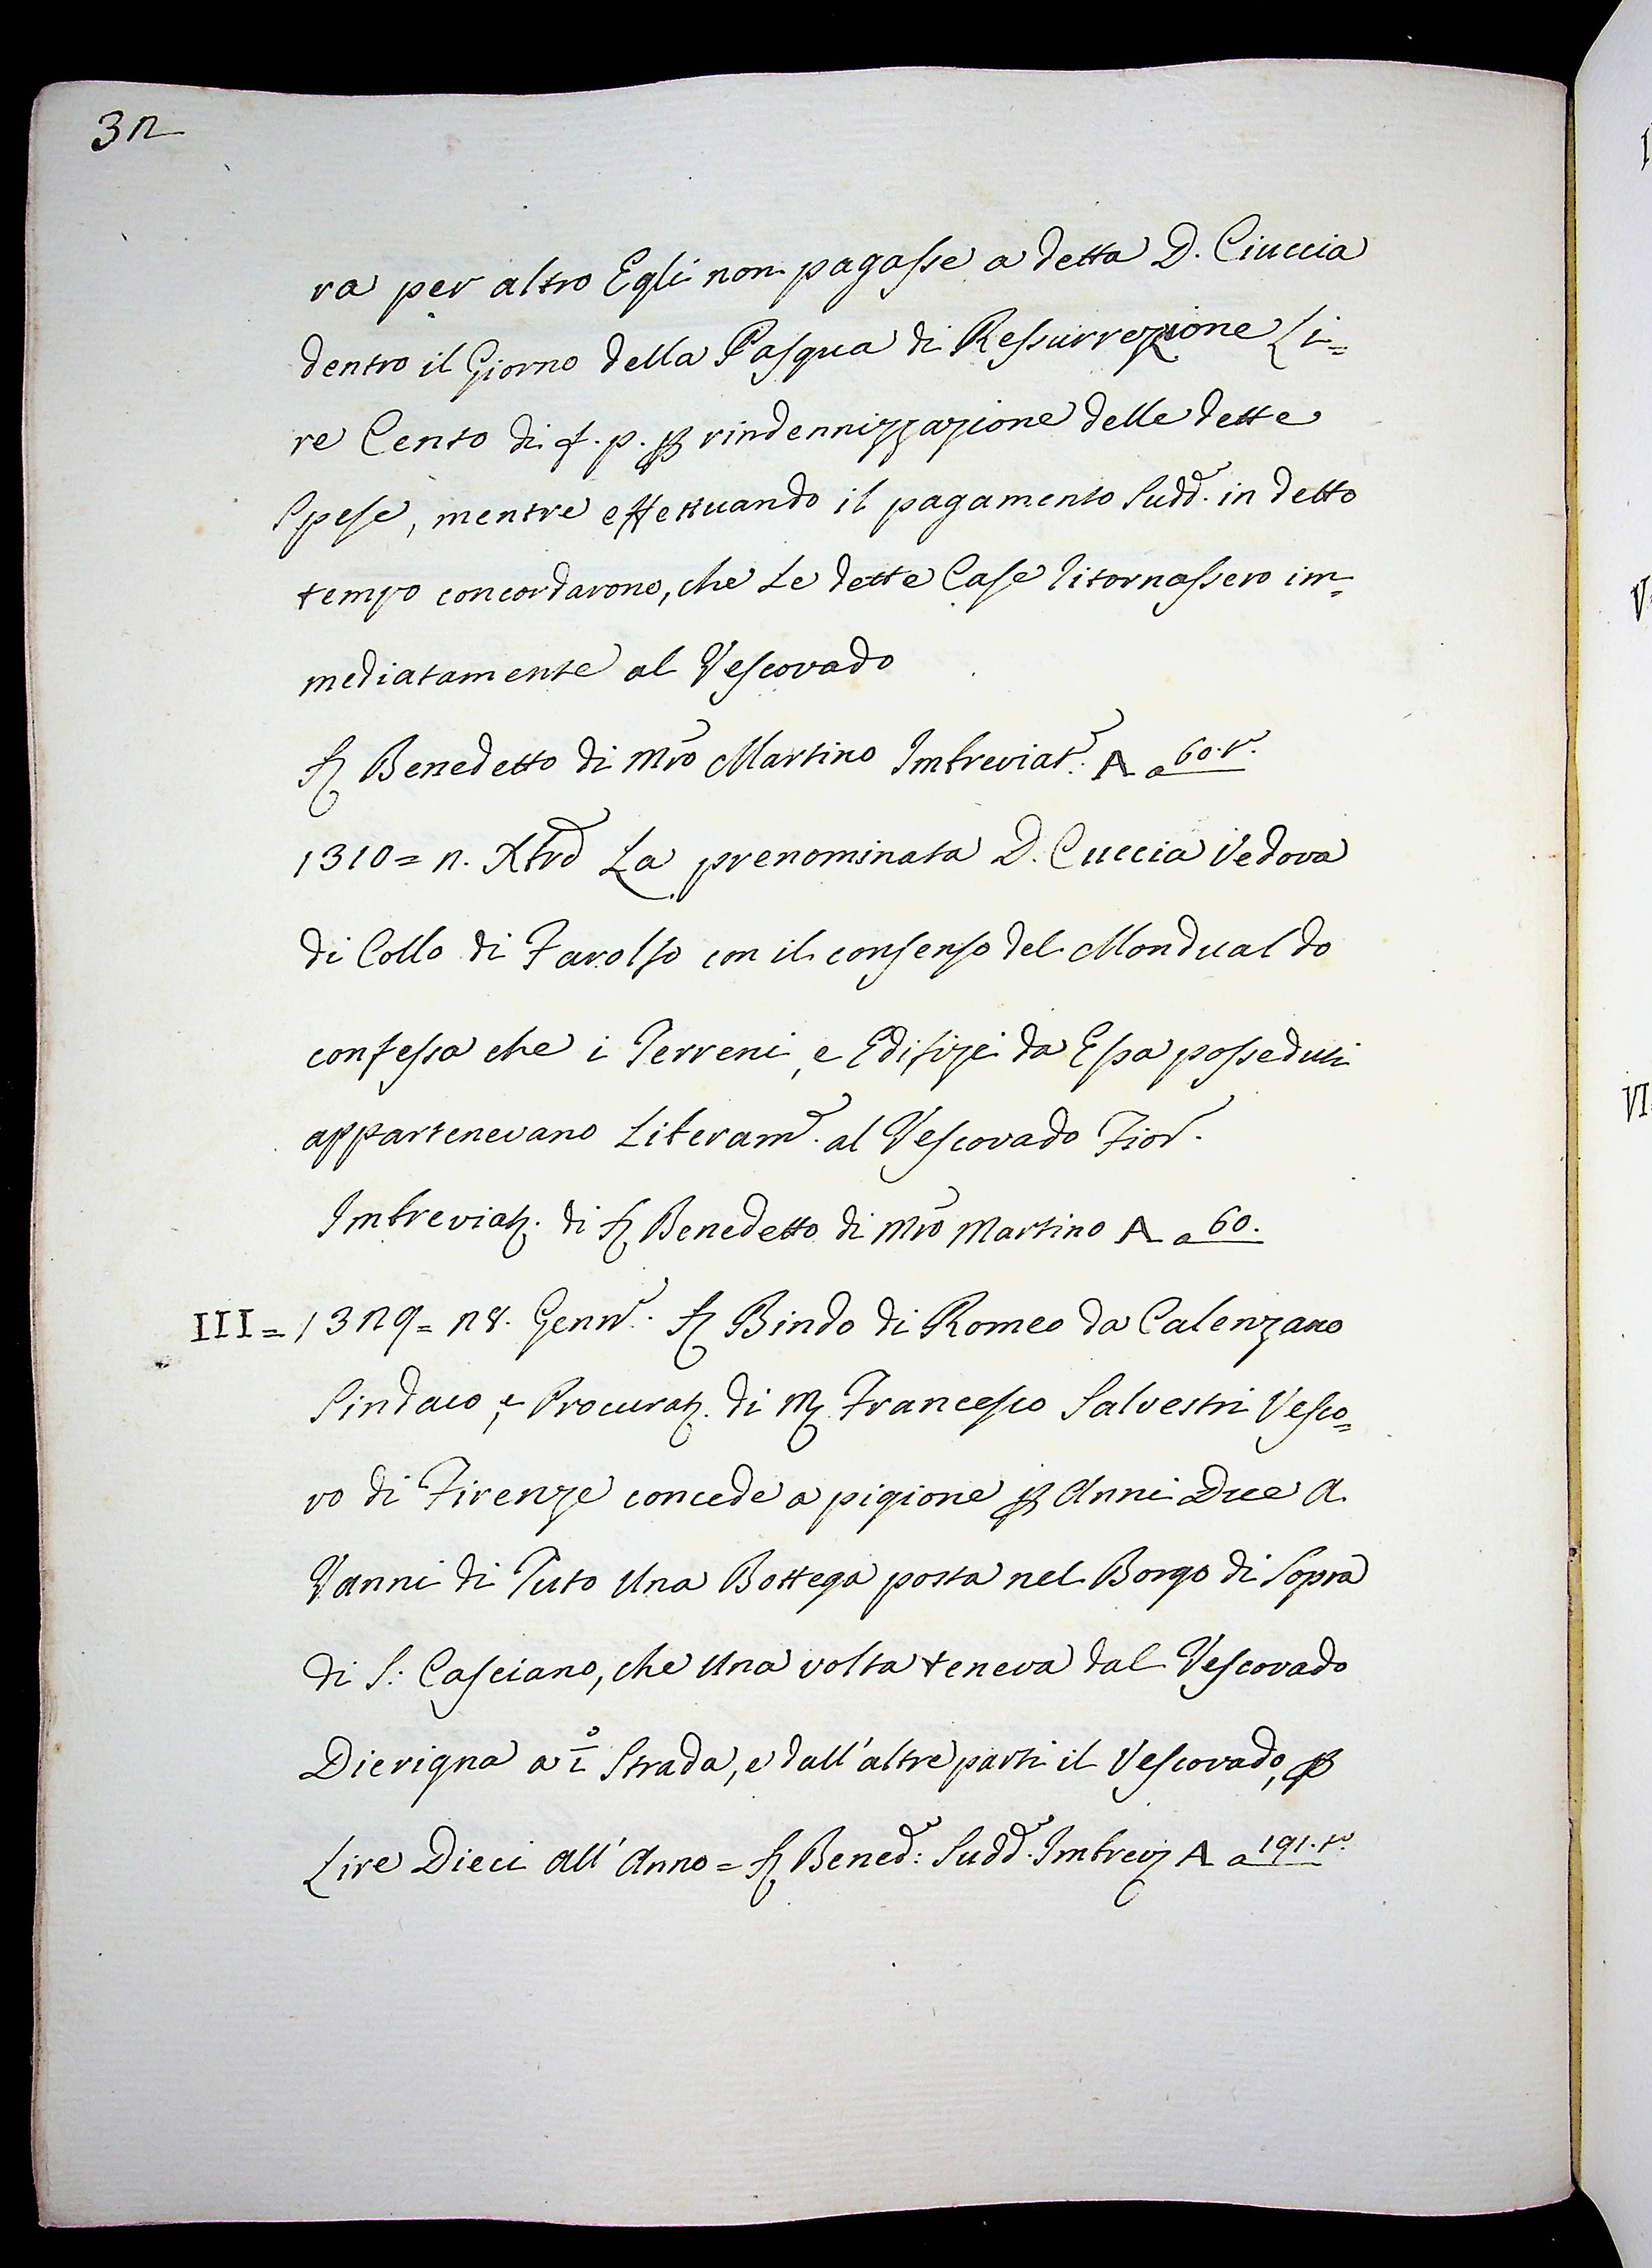 32
ra per altro Egli non pagasse a detta D. Ciuccia
dentro il Giorno della Pasqua di Ressurrezione Li=
re Cento di f. p. ꝑ rindennizzazione delle dette
Spese, mentre effettuando il pagamento Sudd. in detto
tempo concordarono, che Le dette Case ritornassero im=
mediatamente al Vescovado
Sr Benedetto di Mro Martino Imbreviat. A a 60.t.
1310 = 2. Xbre La prenominata D. Cuccia Vedova
di Collo di Farolfo con il consenso del Mondualdo
confessa che i Terreni, e Edifizi da Essa posseduti
appartenevano Liberam. al Vescovado Fior.
Imbreviat. di Sr Benedetto di Mro Martino A a 60.
III = 1329 = 28. Genn. Sr Bindo di Romeo da Calenzano
Sindaco, e Procurat. di Mr Francesco Salvestri Vesco=
vo di Firenze concede a pigione ꝑ Anni Due a
Vanni di Tuto Una Bottega posta nel Borgo di Sopra
di S: Casciano, che Una volta teneva dal Vescovado
Dierigna a i° Strada, e dall'altre parti il Vescovado, ꝑ
Lire Dieci all'Anno = Sr Bened: Sudd. Imbrev A a 191.t.
I
V
VI